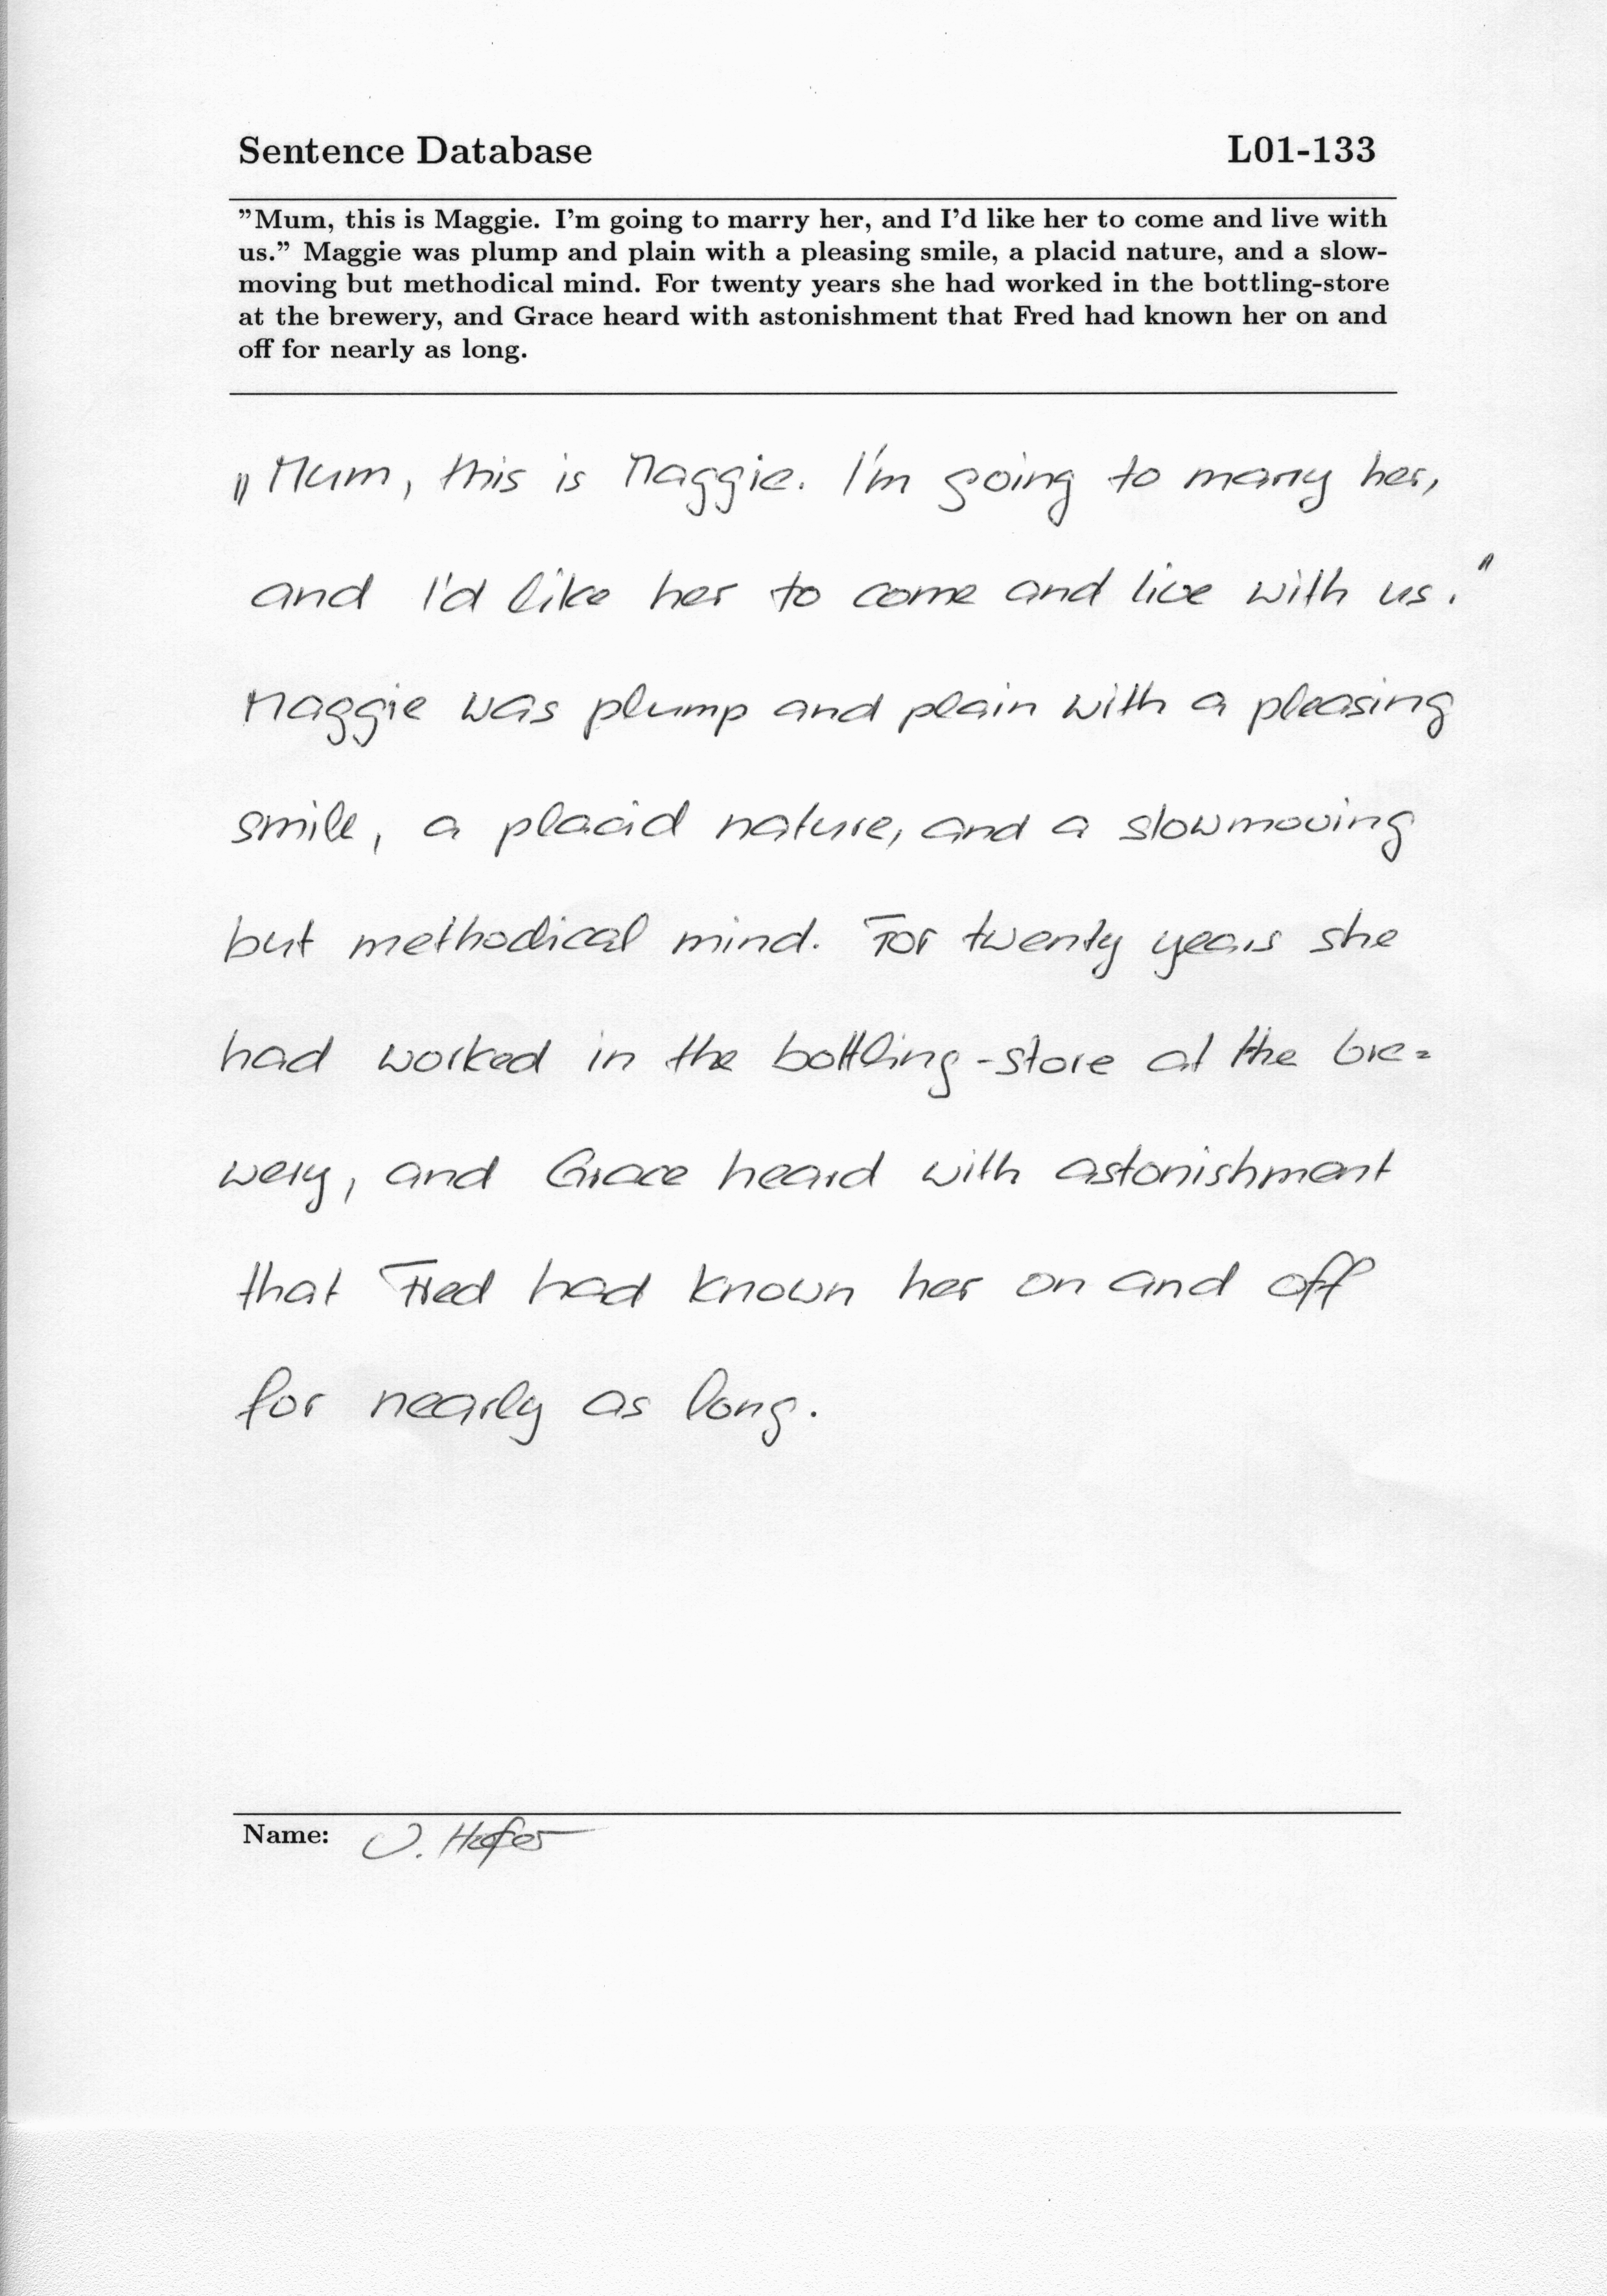 Sentence Database L01-133
"Mum, this is Maggie. I'm going to marry her, and I'd like her to come and live with
us." Maggie was plump and plain with a pleasing smile, a placid nature, and a slow-
moving but methodical mind. For twenty years she had worked in the bottling-store
at the brewery, and Grace heard with astonishment that Fred had known her on and
off for nearly as long.
„Mum, this is Maggie. I'm going to marry her,
and I'd like her to come and live with us."
Maggie was plump and plain with a pleasing
smile, a placid nature, and a slowmoving
but methodical mind. For twenty years she
had worked in the bottling-store at the bre=
wery, and Grace heard with astonishment
that Fred had known her on and off
for nearly as long.
Name: